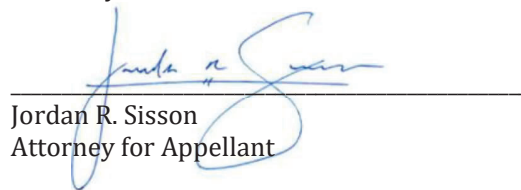 Jordan R. Sisson
Attorney for Appellant